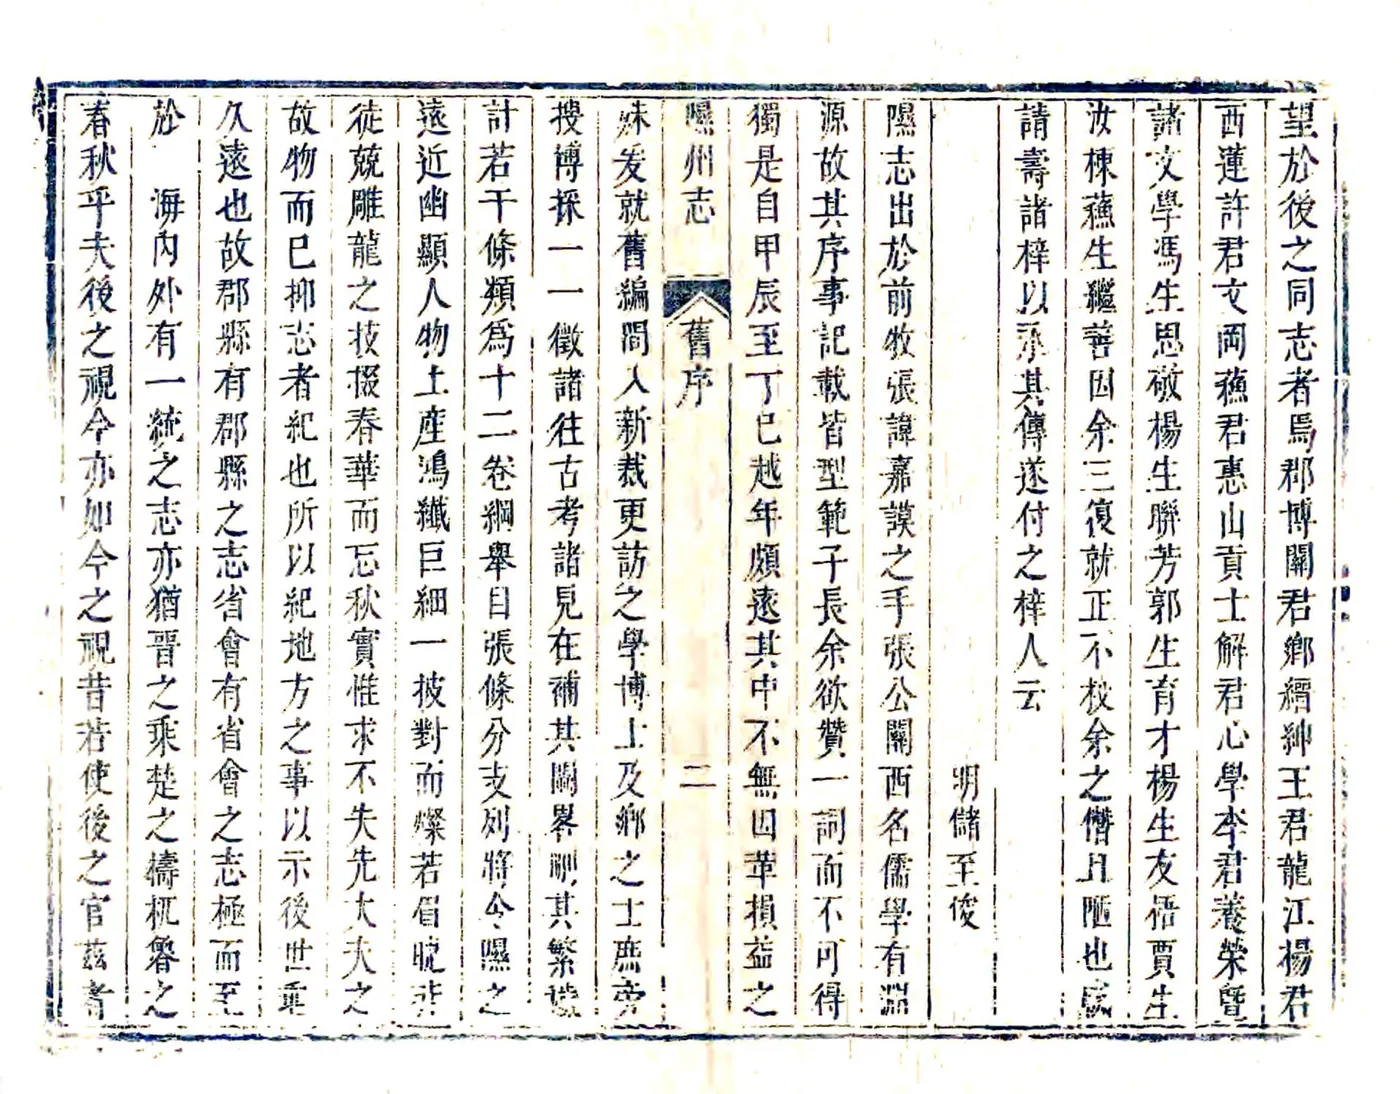 望於後之同志者焉郡博關君鄉縉紳王君龍江楊君
西蓮許君文岡蘓君惠山貢士解君心學李君養榮暨
諸文學馮生思敬楊生聯芳郭生育才楊生友梧賈生
汝棟蘓生繼善因余三復就正不校余之僭且陋也咸
請壽諸梓以永其傳遂付之梓人云
明儲至俊
隰志出於前牧張諱嘉謨之手張公關西名儒學有淵
源故其序事記載皆型範子長余欲贊一詞而不可得
獨是自甲辰至丁巳越年頗遠其中不無因革損益之
隰州志
舊序
二
殊爰就舊編間入新裁更訪之學博士及鄉之士庶旁
搜博採一一徵諸往古考諸見在補其闕畧刪其繁
計若干條類爲十二卷綱舉目張條分支列將令隰之
遠近幽顯人物土產鴻纖巨細一披對而燦若眉睫非
徒競雕龍之技掇春華而忘秋實惟求不失先大夫之
故物而已抑志者紀也所以紀地方之事以示後世垂
久遠也故郡縣有郡縣之志省會有省會之志極而至
於 海內外有一統之志亦猶晋之乘楚之檮杌魯之
春秋乎夫後之視今亦如今之視昔若使後之官茲者